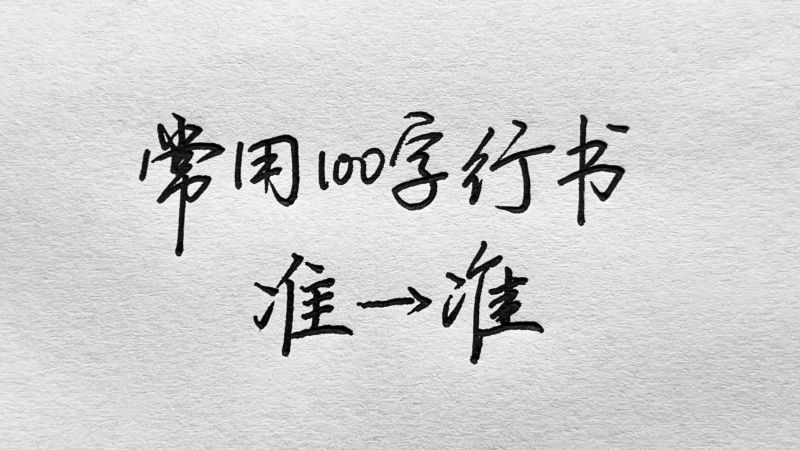 常用100字行书
准→准